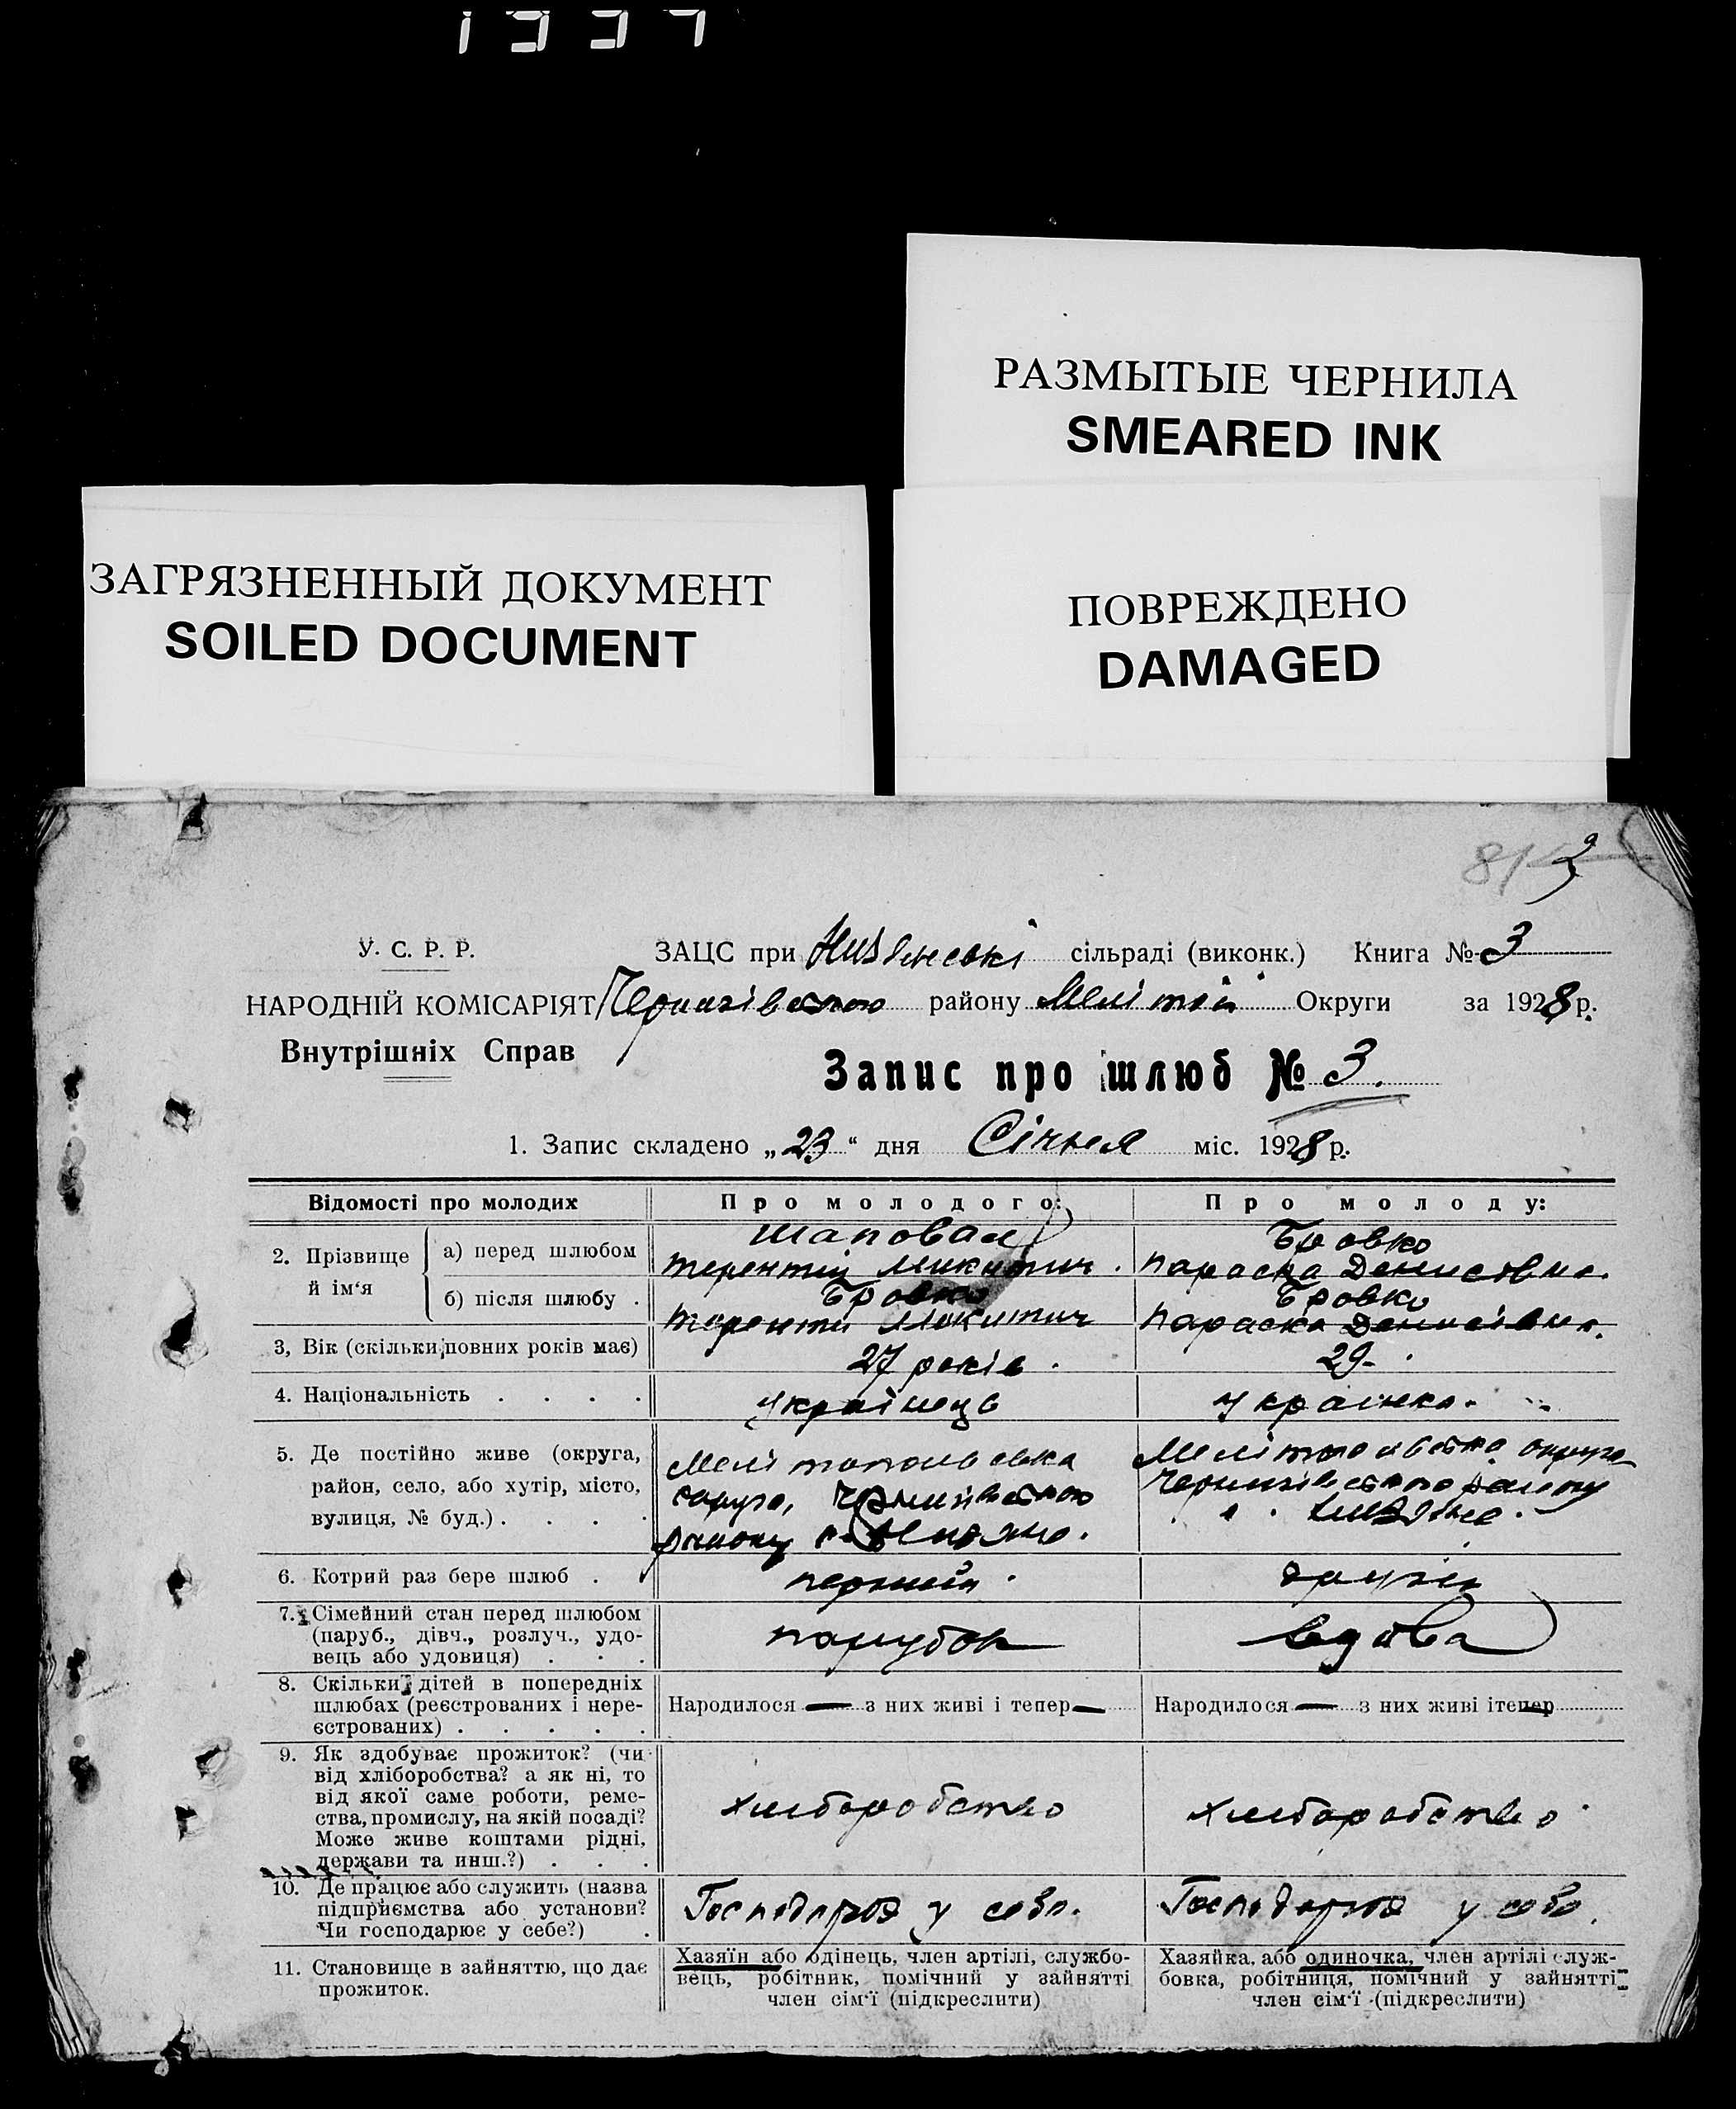 РАЗМЫТЫЕ ЧЕРНИЛА
SMEARED INK
ЗАГРЯЗНЕННЫЙ ДОКУМЕНТ
SOILED DOCUMENT
ПОВРЕЖДЕНО
DAMAGED
У. С. Р. Р.
НАРОДНІЙ КОМІСАРІЯТ
Внутрішніх Справ
ЗАЦС при сільраді (виконк.) Книга № 3
району Округи за 1928 р.
Запис про шлюб № 3.
1. Запис складено „23“ дня Січня міс. 1928 р.
Відомості про молодих
Про молодого:
Про молоду:
2. Прізвище й ім'я
а) перед шлюбом
Шаповал
Терентій Микитич.
Бровко
Параска Денисовна.
б) після шлюбу .
Бровко
Терентій Микитич
Бровко
Параска Денисівна.
3, Вік (скільки повних років має)
27 років.
29.
4. Національність . . . .
Українець
Українка.
5. Де постійно живе (округа,
район, село, або хутір, місто,
вулиця, № буд.) . . . .
Мелітопольська
округа,
району
округа
району
6. Котрий раз бере шлюб . .
перший.
другий
7. Сімейний стан перед шлюбом
(паруб., дівч., розлуч., удо-
вець або удовиця) . . .
парубок
вдова
8. Скільки дітей в попередніх
шлюбах (реєстрованих і нере-
єстрованих) . . . . .
Народилося — з них живі і тепер —
Народилося — з них живі ітепер —
9. Як здобуває прожиток? (чи
від хліборобства? а як ні, то
від якої саме роботи, реме-
ства, промислу, на якій посаді?
Може живе коштами рідні,
держави та инш.?) . . .
хліборобство
хліборобство
10. Де працює або служить (назва
підприємства або установи?
Чи господарює у себе?) .
у себе.
у себе.
11. Становище в зайняттю, що дає
прожиток.
Хазяїн або одінець, член артілі, службо-
вець, робітник, помічний у зайнятті
член сім'ї (підкреслити)
Хазяйка, або одиночка, член артілі служ-
бовка, робітниця, помічний у зайнятті
член сім'ї (підкреслити)